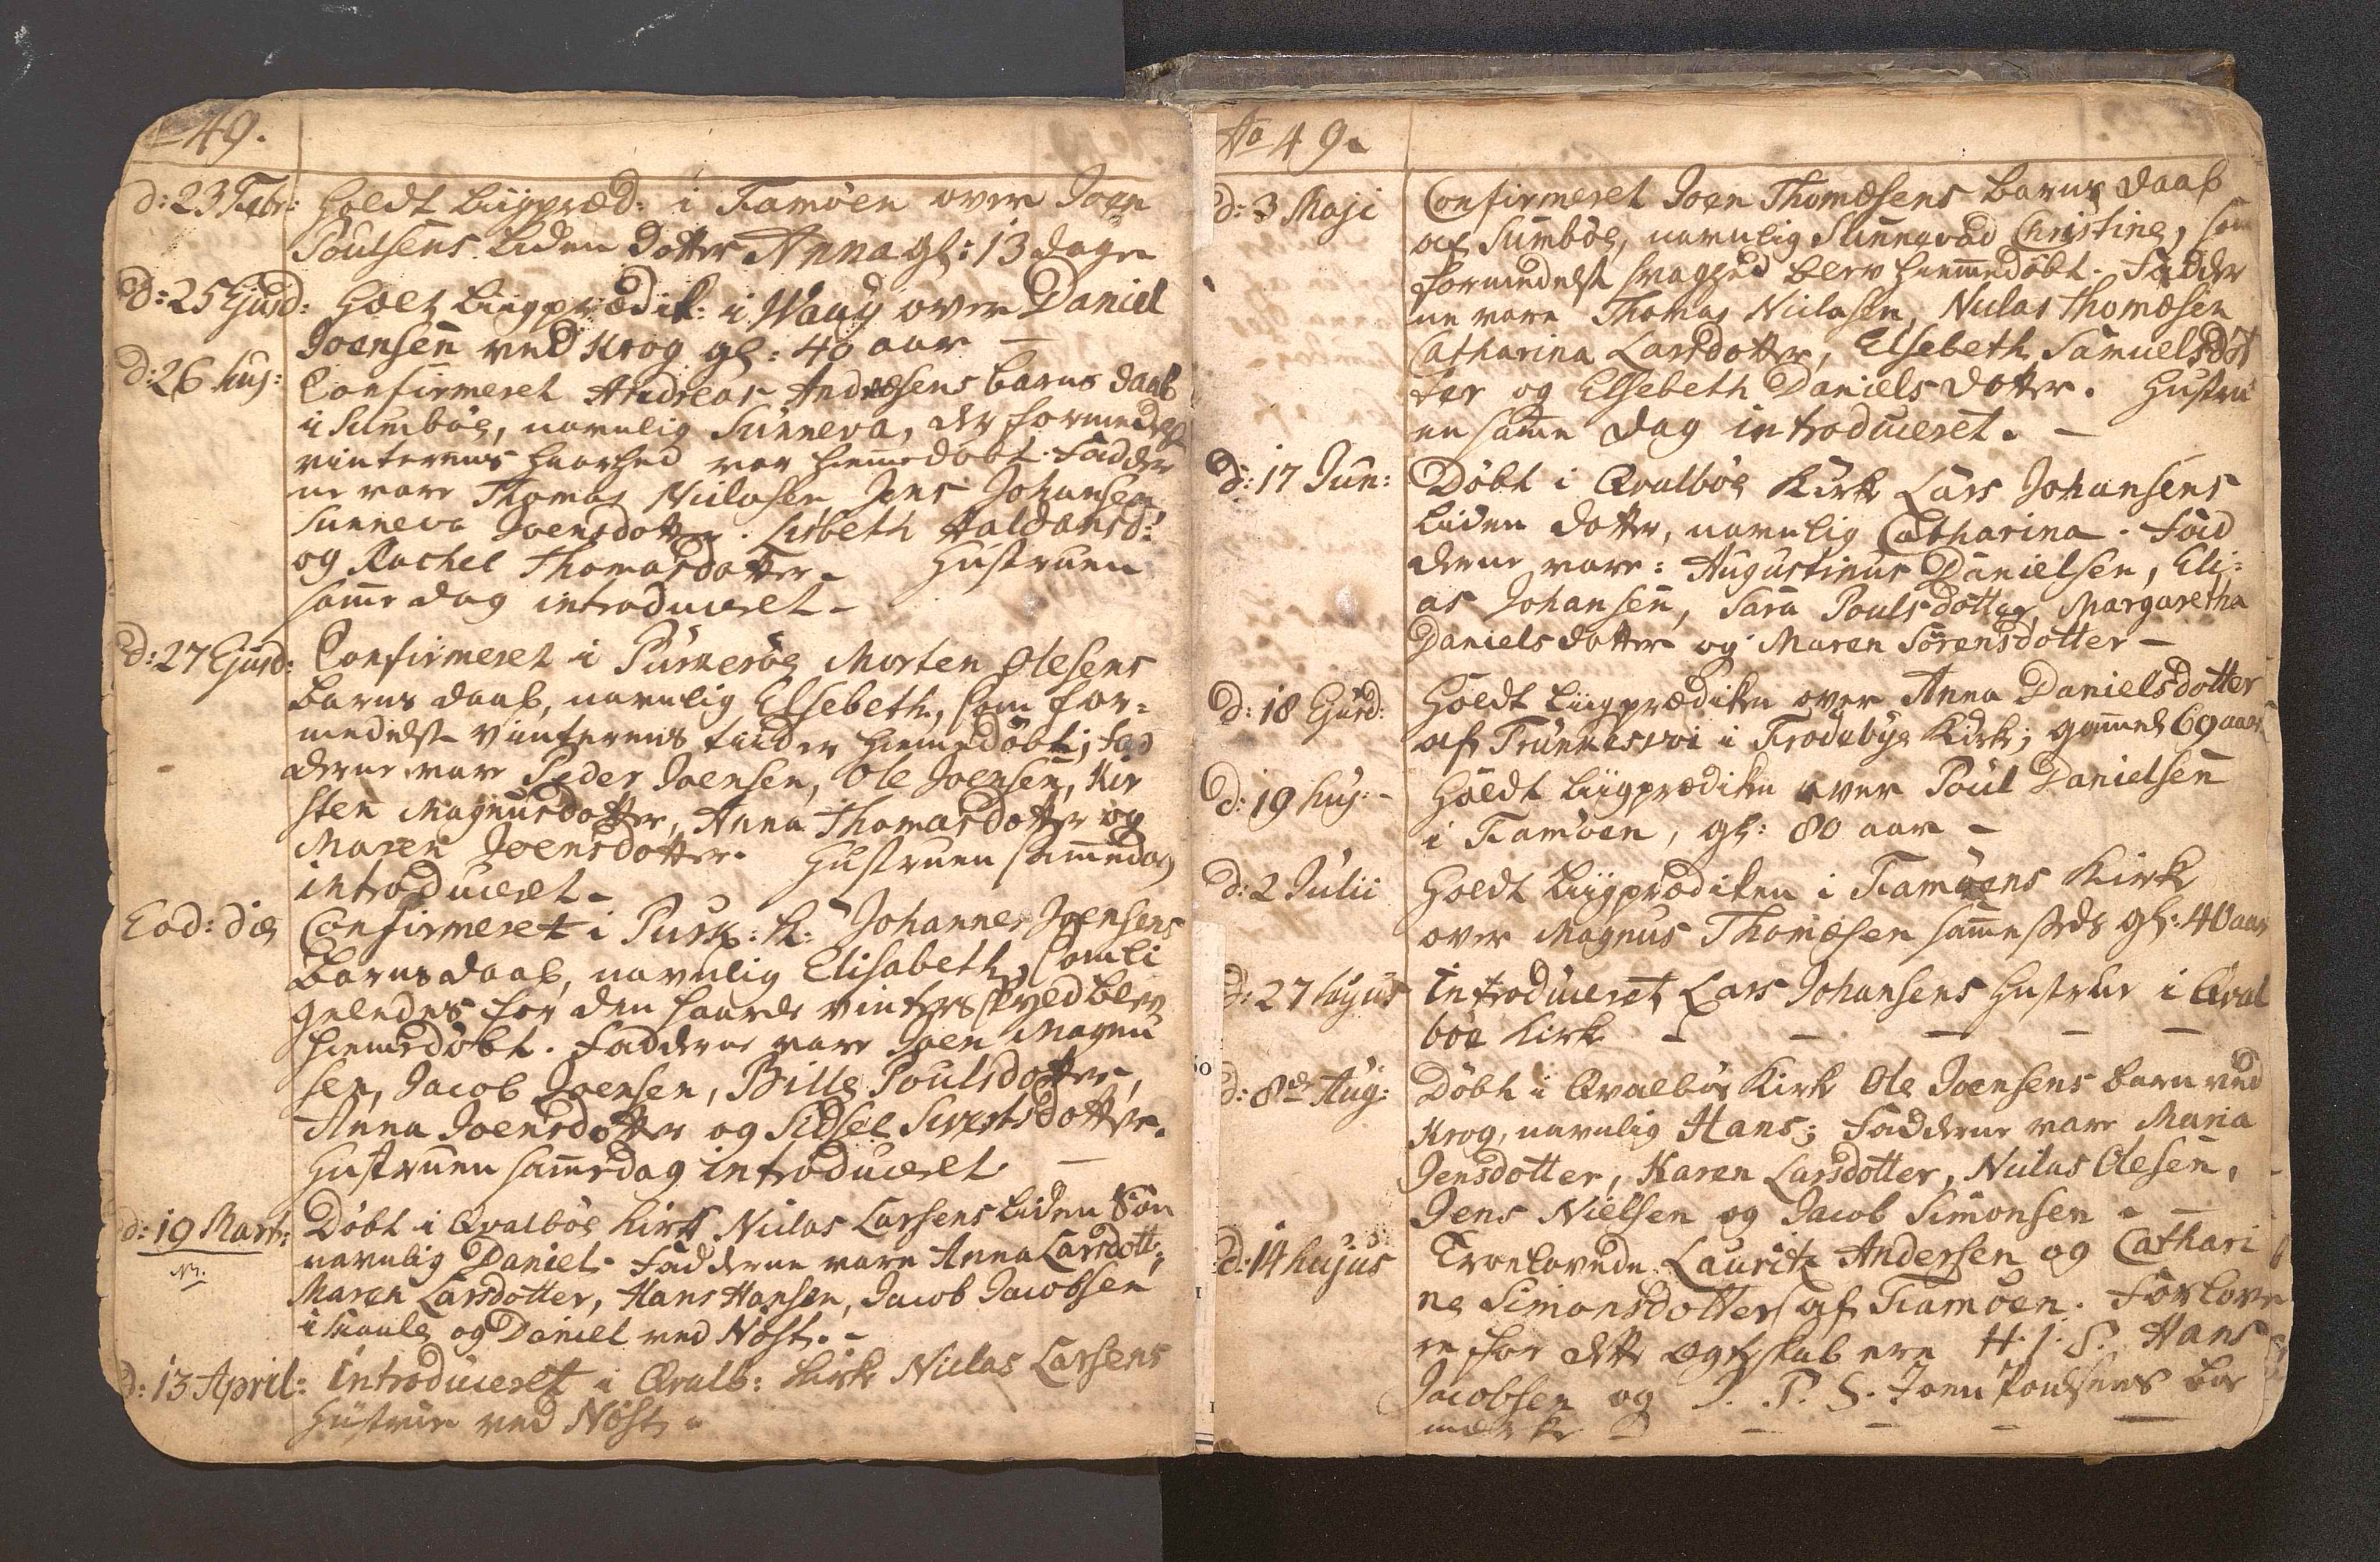 49.
d: 23 Febr: Holdt Liigpræd: i Famöen over Joen
Poulsens liden Dotter Anna gl: 13 dage
d: 25 Ejusd: Holt Liigprædik: i Waag over Daniel
Joensen ved Krog gl: 40 aar —
d: 26 huj: Confirmeret Andreas Andræsens barns daab
i Sumböe, navnlig Sunneva, der formedelst
vinterens haarhed var hiemedöbt. Fadder
ne vare Thomas Niclasen, Jens Johansen
Sunneva Joensdotter. Lisbeth Haldansd:
og Rachel Thomasdotter. Hustruen
samme dag introduceret —
d: 27 Ejusd: Confirmeret i Purkeröe Morten Olesens
barns daab, navnlig Elsebeth, som for=
medelst vinterens tiider hiemedöbt; Fad
derne vare Peder Joensen, Ole Joensen, Kir
sten Magnusdotter, Anna Thomasdotter og
Maren Joensdotter. Hustruen samme dag
introduceret —
Eod: die Confirmeret i Purk: K: Johannes Joensens
barns daab, navnlig Elisabeth, som li
geledes for den haarde vinters skyld blev
hiemedöbt. Fadderne vare Joen Magnu
sen, Jacob Joensen, Bille Poulsdotter,
Anna Joensdotter og Sidsel Sivertsdotter.
Hustruen samme dag introduceret —
d: 19 Mart: Döbt i Qvalböe Kirke Niclas Larsens liden Sön
navnlig Daniel. Fadderne vare Anna Larsdott:,
Maren Larsdotter, Hans Hansen, Jacob Jacobsen
i og Daniel ved Nöst. —
d: 13 April: Introduceret i Qvalb: Kirke Niclas Larsens
Hustrue ved Nöst.
Ao 49.
d: 3 Maji Confirmeret Joen Thomæsens barns daab
af Sumböe, navnlig Sunnevad Christine, som
formedelst svaghed blev hiemmedöbt. Fadder
ne vare Thomas Niclasen, Niclas Thomæsen
Catharina Larsdotter, Elsebeth Samuelsdot
ter og Elsebeth Danielsdotter. Hustru
en samme dag introduceret. —
d: 17 Jun: Döbt i Qvalböe Kirke Lars Johansens
liden dotter, navnlig Catharina. Fad
derne vare: Augustinus Danielsen, Eli=
as Johansen, Sara Poulsdotter, Margaretha
Danielsdotter og Maren Sörensdotter —
d: 18 Ejusd: Holdt Liigprædiken over Anna Danielsdotter
af i Frodebye Kirke; gammel 69 aar
d: 19 huj: Holdt Liigprædiken over Poul Danielsen
i Famöen, gl: 80 aar —
d: 2 Julii Holdt Liigprædiken i Famöens Kirke
over Magnus Thomæsen sammesteds gl: 40 aar
d: 27 hujus Introduceret Lars Johansens Hustrue i Qval
böe Kirke — — — — —
d: 8de Aug: Döbt i Qvalböe Kirke Ole Joensens barn ved
Krog, navnlig Hans; Fadderne vare Maria
Jensdotter, Karen Larsdotter, Niclas Olesen,
Jens Nielsen og Jacob Simonsen —
d: 14 hujus Troelovede Lauritz Andersen og Cathari
ne Simonsdotter af Famöen. Forlove
re for dette Ægteskab ere H. J. S. Hans
Jacobsen og J. P. S. Joen Poulsens boe
mærke — — — —